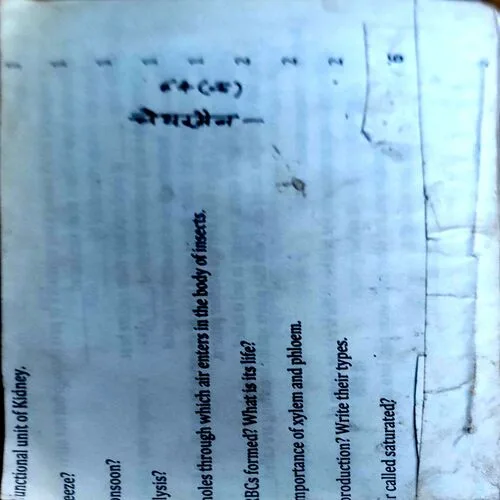 unctional unit of Kidney. 1
eeze? 1
onsoon? 1
lysis? 1
holes through which air enters in the body of insects. 1
RBCs formed? What is its life? 2
mportance of xylem and phloem. 2
production? Write their types. 2
r called saturated? 6